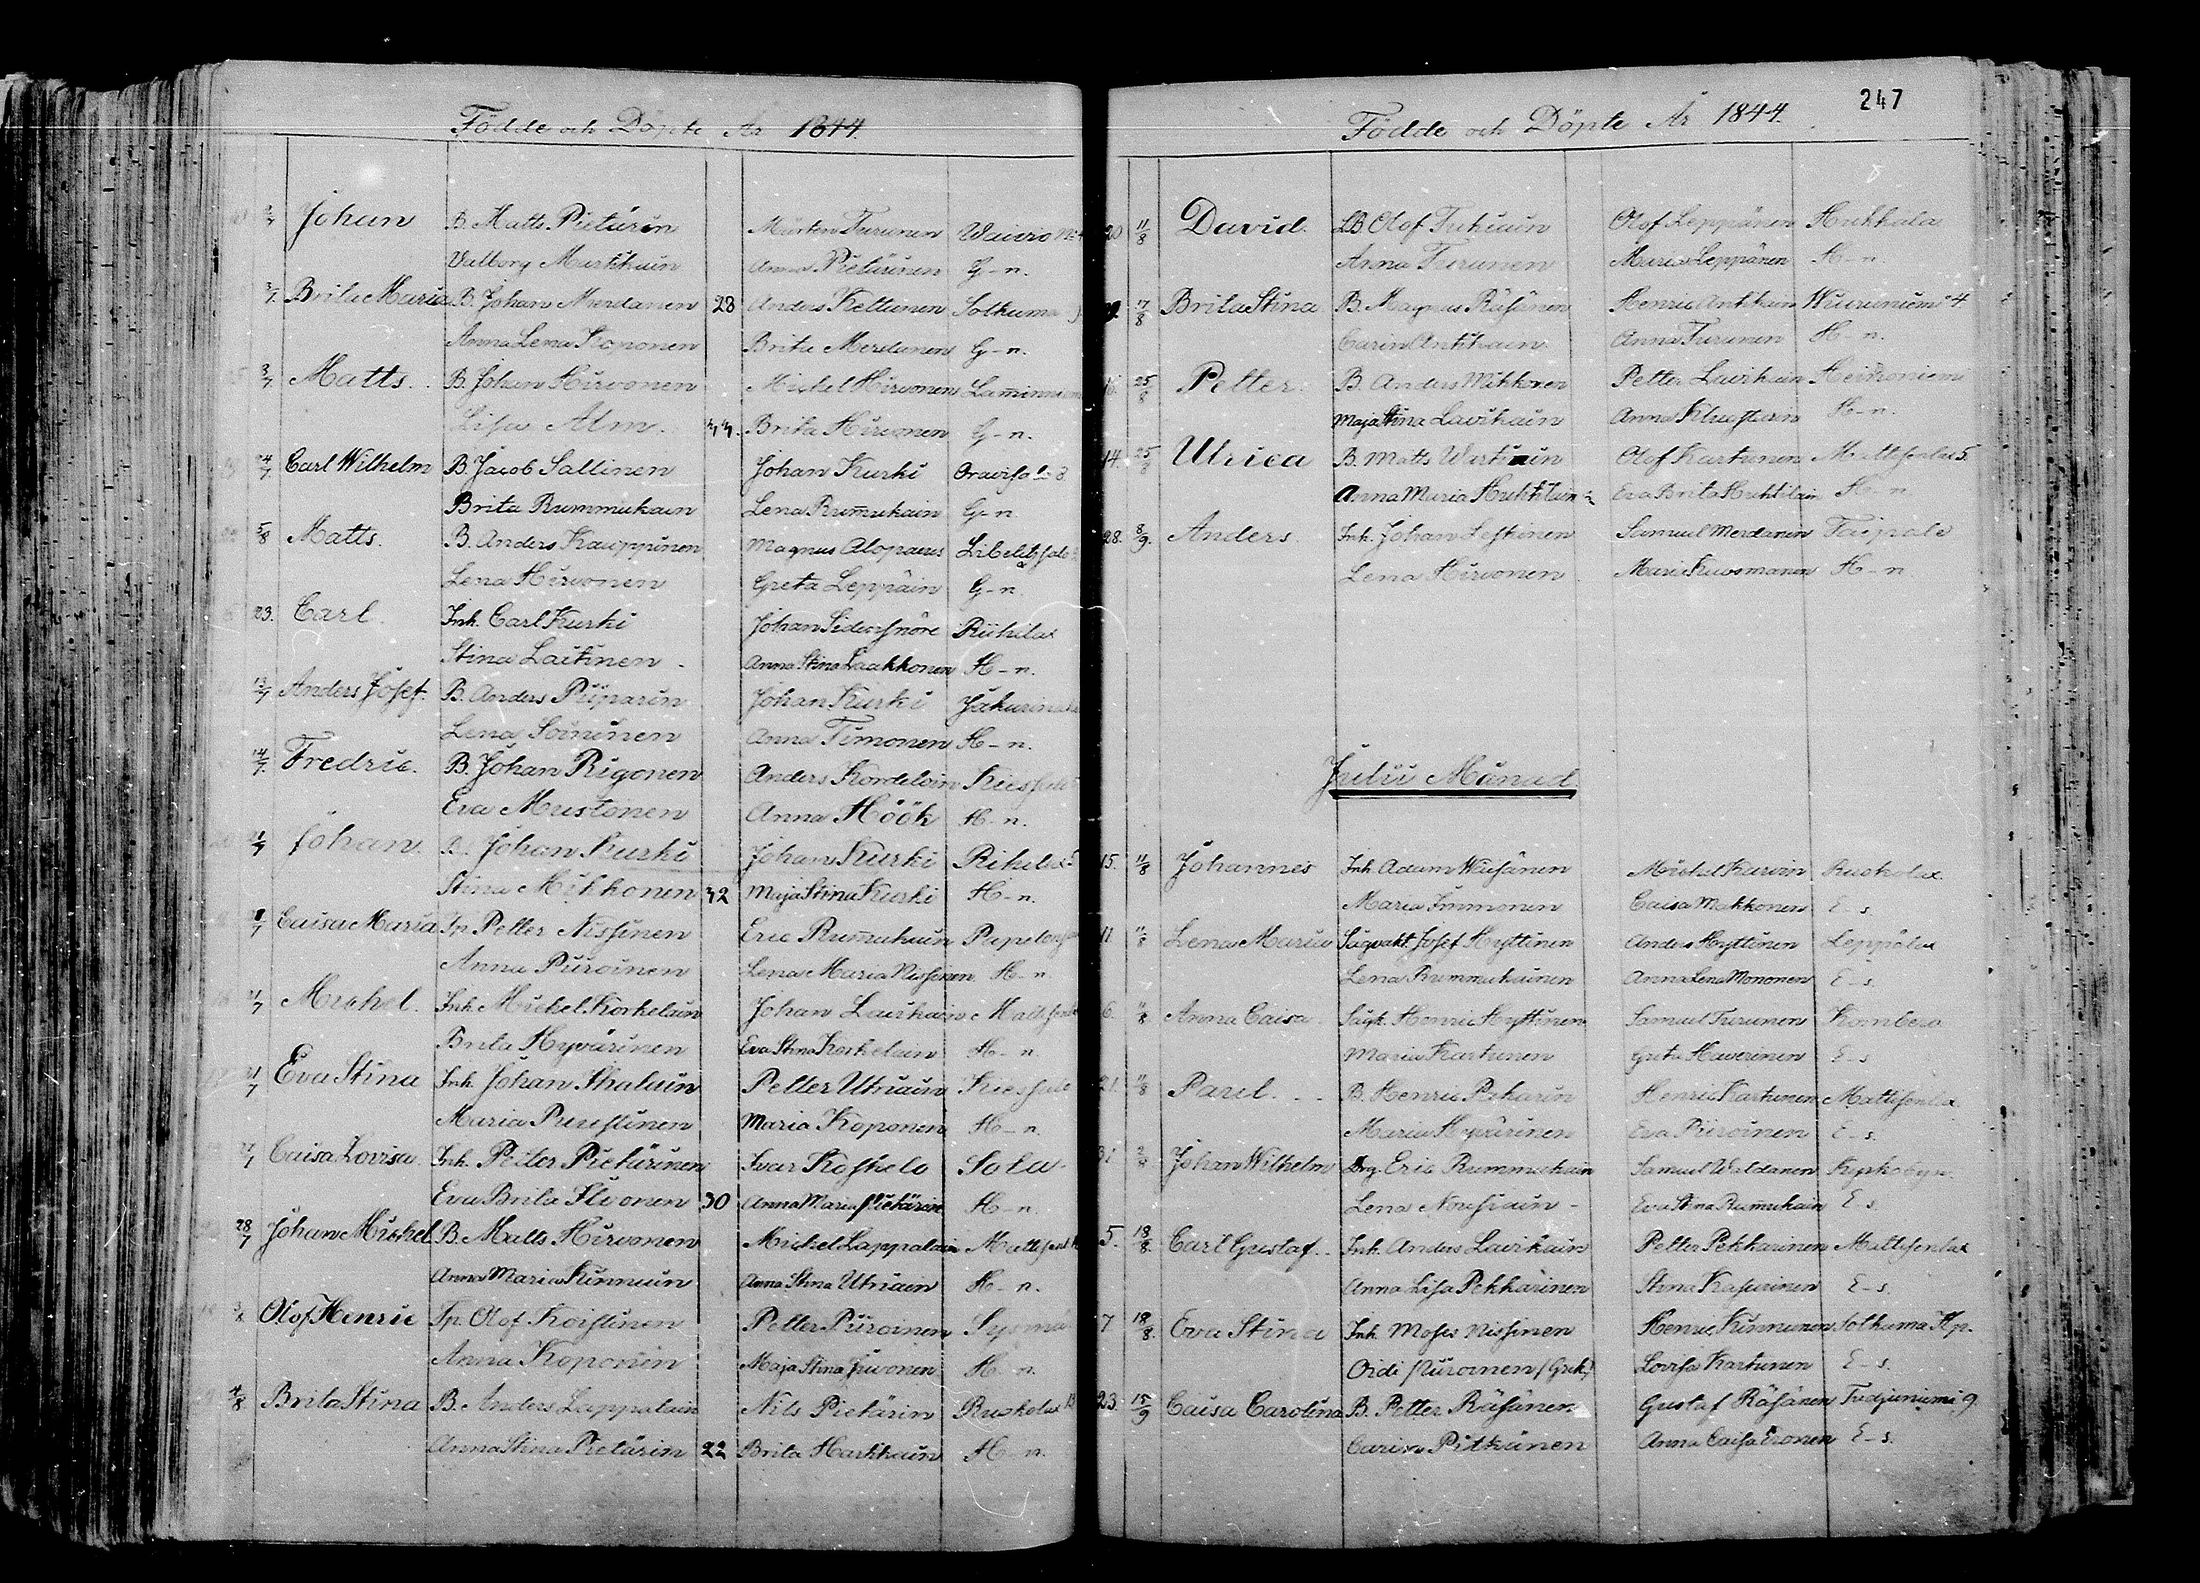 Födde och Döpte År 1844.
2/7 Johan B. Matts Pietärin Mårten Turunen Waivio N:4
Valborg Martikain Anna Pietärinen G-n.
3/7 Brita Maria B. Johan Merdanen 28 Anders Keltunen Solkuma
Anna Lena Koponen Brita Merdanen G-n.
3/7 Matts. B. Johan Hirvonen Michel Hirvonen
Lisa Alm. Brita Hirvonen G-n.
Carl Wilhelm B. Jacob Sallinen Johan Kurki
Brita Rummukain Lena Rummukain G-n
5/8 Matts. B. Anders Kauppinen Magnus Alopaeus
Lena Hirvonen Greta Leppäin G-n.
23. Carl. Inh. Carl Kurki Johan Sidensnöre Riihilax
Stina Laitinen Anna Stina Laakkonen H-n.
Anders Josef. B. Anders Piiparin Johan Kurki
Lena Soininen Anna Timonen H-n.
14/7. Fredric. B. Johan Rigonen Anders Kordelain
Eva Mustonen Anna Höök H-n.
Johan. B. Johan Kurki Johan Kurki
Stina Mikkonen 32 Maja Stina Kurki H-n.
Caisa Maria Tp. Petter Nissinen Eric Rummukain
Anna Piiroinen Lena Maria Nissinen H-n.
21/7 Michel. Inh. Michel Korkelain Johan Lavikain
Brita Hyvärinen Eva Stina Korkelain H-n.
21/7 Eva Stina Inh. Johan Ihalain Petter Utriain
Maria Puustinen Maria Koponen H-n.
Caisa Lovisa. Inh. Petter Pietärinen Ivar Koskelo Sola
Eva Brita Ilvonen 30 Anna Maria Pietärin H-n.
28/7 Johan Michel B. Matts Hirvonen Michel Lappalain
Anna Maria Kinnuin Anna Stina Utriain H-n.
Olof Henric Tp. Olof Koistinen Petter Piiroinen Sysmä
Anna Koponen Maja Stina H-n.
4/8 Brita Stina B. Anders Lappalain Nils Pietärin
Anna Stina Pietärin 22 Brita Harkkain H-n.
Födde och Döpte År 1844. 247
20 11/8 David. Olof Leppänen Hukkala
Anna Turunen Maria Leppänen H-n.
Brita Stina B. Magnus Räsänen Henric Antikain Wuoriniemi 4
Carin Antikain Anna Turunen H-n.
25/8 Petter. B. Anders Mikkonen Petter Lavikain Heinoniemi
Maja Stina Lavikain Anna H-n.
14. 25/8 Ulrica B. Matts Olof Kartunen Mattisenlax 5.
Anna Maria Huhtilain Eva Brita Huhtilain H-n
28. 8/9. Anders. Inh. Johan Leskinen Samuel Merdanen Taipale
Lena Hirvonen Maria Kuosmanen H-n.
Julii Månad
15. 11/8 Johannes Inh. Adam Väisänen Michel Karvin Ruokolax.
Maria Immonen Caisa Makkonen E-s.
11 11/8 Lena Maria Josef Hyttinen Anders Hyttinen Leppälax
Lena Rummukainen Anna Lena Mononen E-s.
6. 11/8 Anna Caisa Henric Hyttinen Samuel Turunen Kombero
Maria Kartunen Greta Haverinen E-s
21. 11/8 Pavel. B. Henric Pekarin Henric Kartunen Mattisenlax
Maria Hyvärinen Eva Piiroinen E-s.
31 Johan Wilhelm Drg. Eric Rummukain Samuel Waldanen
Lena Nousiain Eva Stina Rummukain E s.
5. 18/8. Carl Gustaf. Inh. Anders Lavikain Petter Pekkarinen Mattisenlax
Anna Lisa Pekkarinen Stina Kasurinen E-s.
7 18/8. Eva Stina Inh. Moses Nissinen Henric Kinnunen Solkuma Hp.
Oidi Piiroinen (Grek.) Lovisa Kartunen E-s.
23. 15/9 Caisa Carolina B. Petter Räsänen Gustaf Räsänen 9
Carin Pitkänen Anna Caisa Eronen E-s.